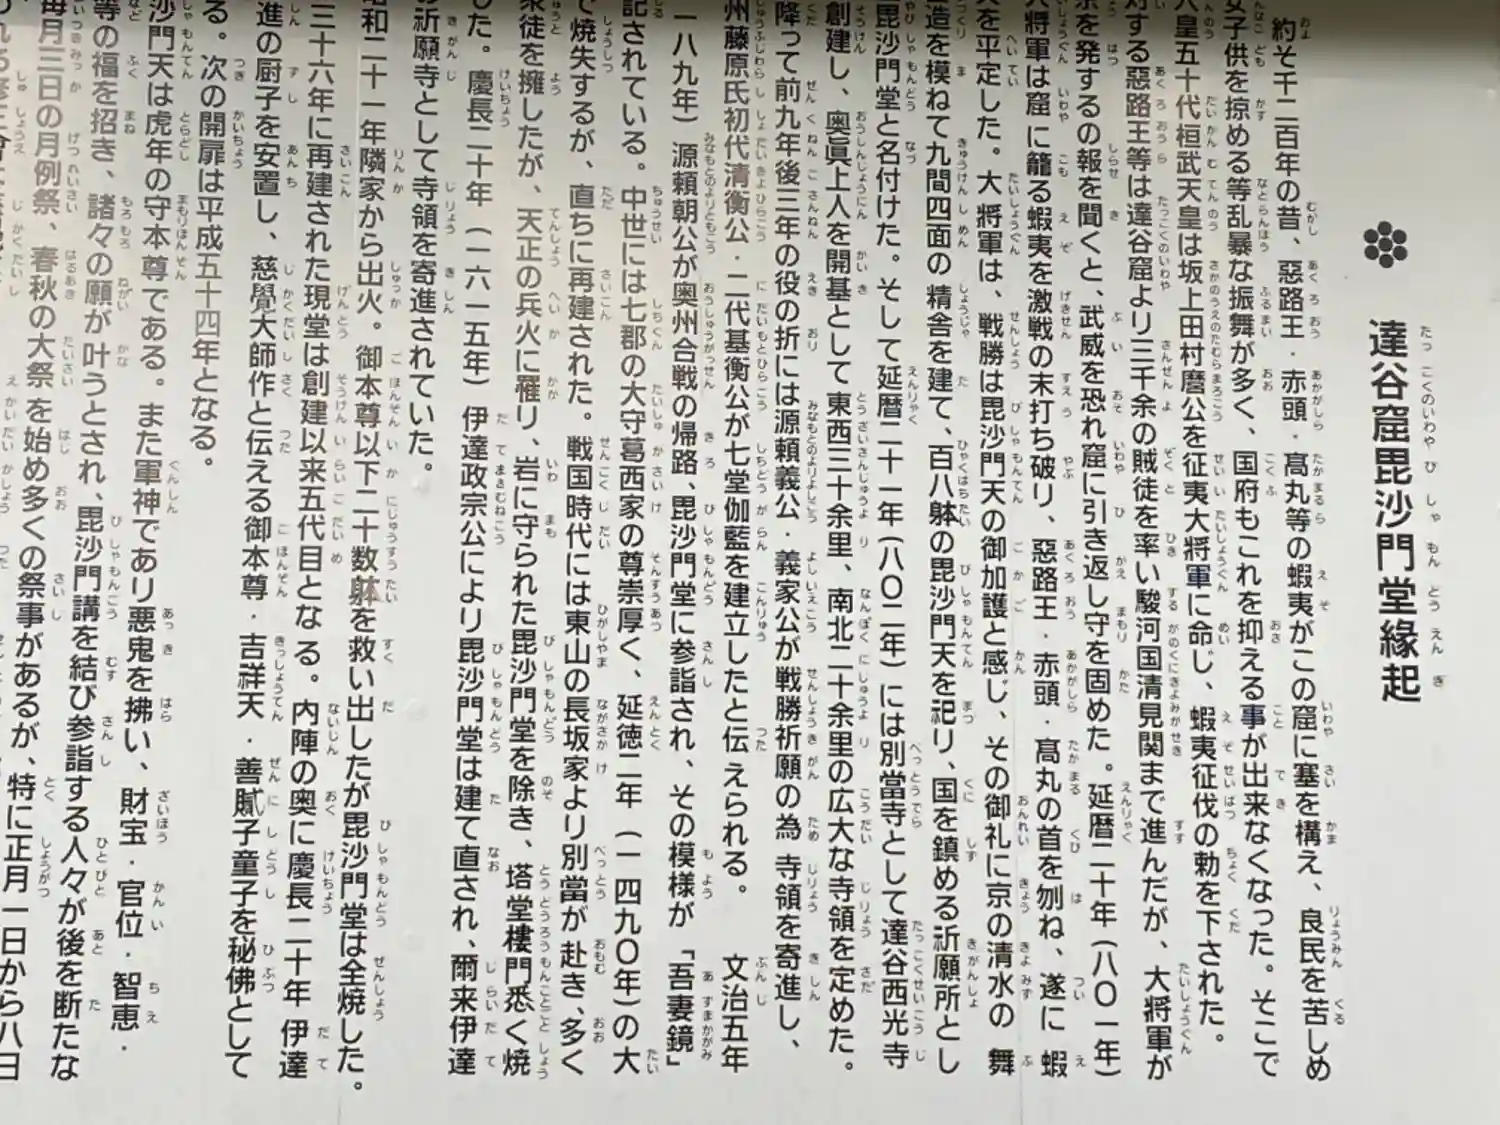 達谷窟毘沙門堂縁起
約そ千二百年の昔、惡路王·赤頭·髙丸等の蝦夷がこの窟に塞を構え、良民を苦しめ
女子供を掠める等乱暴な振舞が多く、国府もこれを抑える事が出来なくなった。そこで
人皇五十代桓武天皇は坂上田村麿公を征夷大将軍に命じ、蝦夷征伐の勅を下された。
対する惡路王等は達谷窟より三千余の賊徒を率い駿河国清見関まで進んだが、大将軍が
京を発するの報を聞くと、武威を恐れ窟に引き返し守を固めた。延暦二十年（八〇一年）
大将軍は窟に籠る蝦夷を激戦の末打ち破り、惡路王·赤頭·髙丸の首を刎ね、遂に蝦
夷を平定した。大将軍は、戦勝は毘沙門天の御加護と感じ、その御礼に京の清水の舞
造を模ねて九間四面の精舎を建て、百八躰の毘沙門天を祀り、国を鎮める祈願所とし
毘沙門堂と名付けた。そして延暦二十一年（八〇二年）には別當寺として達谷西光寺
創建し、奥眞上人を開基として東西三十余里、南北二十余里の広大な寺領を定めた。
降って前九年後三年の役の折には源頼義公·義家公が戦勝祈願の為寺領を寄進し、
州藤原氏初代清衡公·二代基衡公が七堂伽藍を建立したと伝えられる。文治五年
一八九年）源頼朝公が奥州合戦の帰路、毘沙門堂に参詣され、その模様が「吾妻鏡」
記されている。中世には七郡の大守葛西家の尊崇厚く、延徳二年（一四九〇年）の大
で焼失するが、直ちに再建された。戦国時代には東山の長坂家より別當が赴き、多く
衆徒を擁したが、天正の兵火に罹り、岩に守られた毘沙門堂を除き、塔堂樓門悉く焼
した。慶長二十年（一六一五年）伊達政宗公により毘沙門堂は建て直され、爾来伊達
の祈願寺として寺領を寄進されていた。
昭和二十一年隣家から出火。御本尊以下二十数躰を救い出したが毘沙門堂は全焼した。
三十六年に再建された現堂は創建以来五代目となる。内陣の奥に慶長二十年伊達
進の厨子を安置し、慈覺大師作と伝える御本尊·吉祥天·善膩子童子を秘佛として
る。次の開扉は平成五十四年となる。
沙門天は虎年の守本尊である。また軍神であり悪鬼を拂い、財宝·官位·智恵·
等の福を招き、諸々の願が叶うとされ、毘沙門講を結び参詣する人々が後を断たな
毎月三日の月例祭、春秋の大祭を始め多くの祭事があるが、特に正月一日から八日